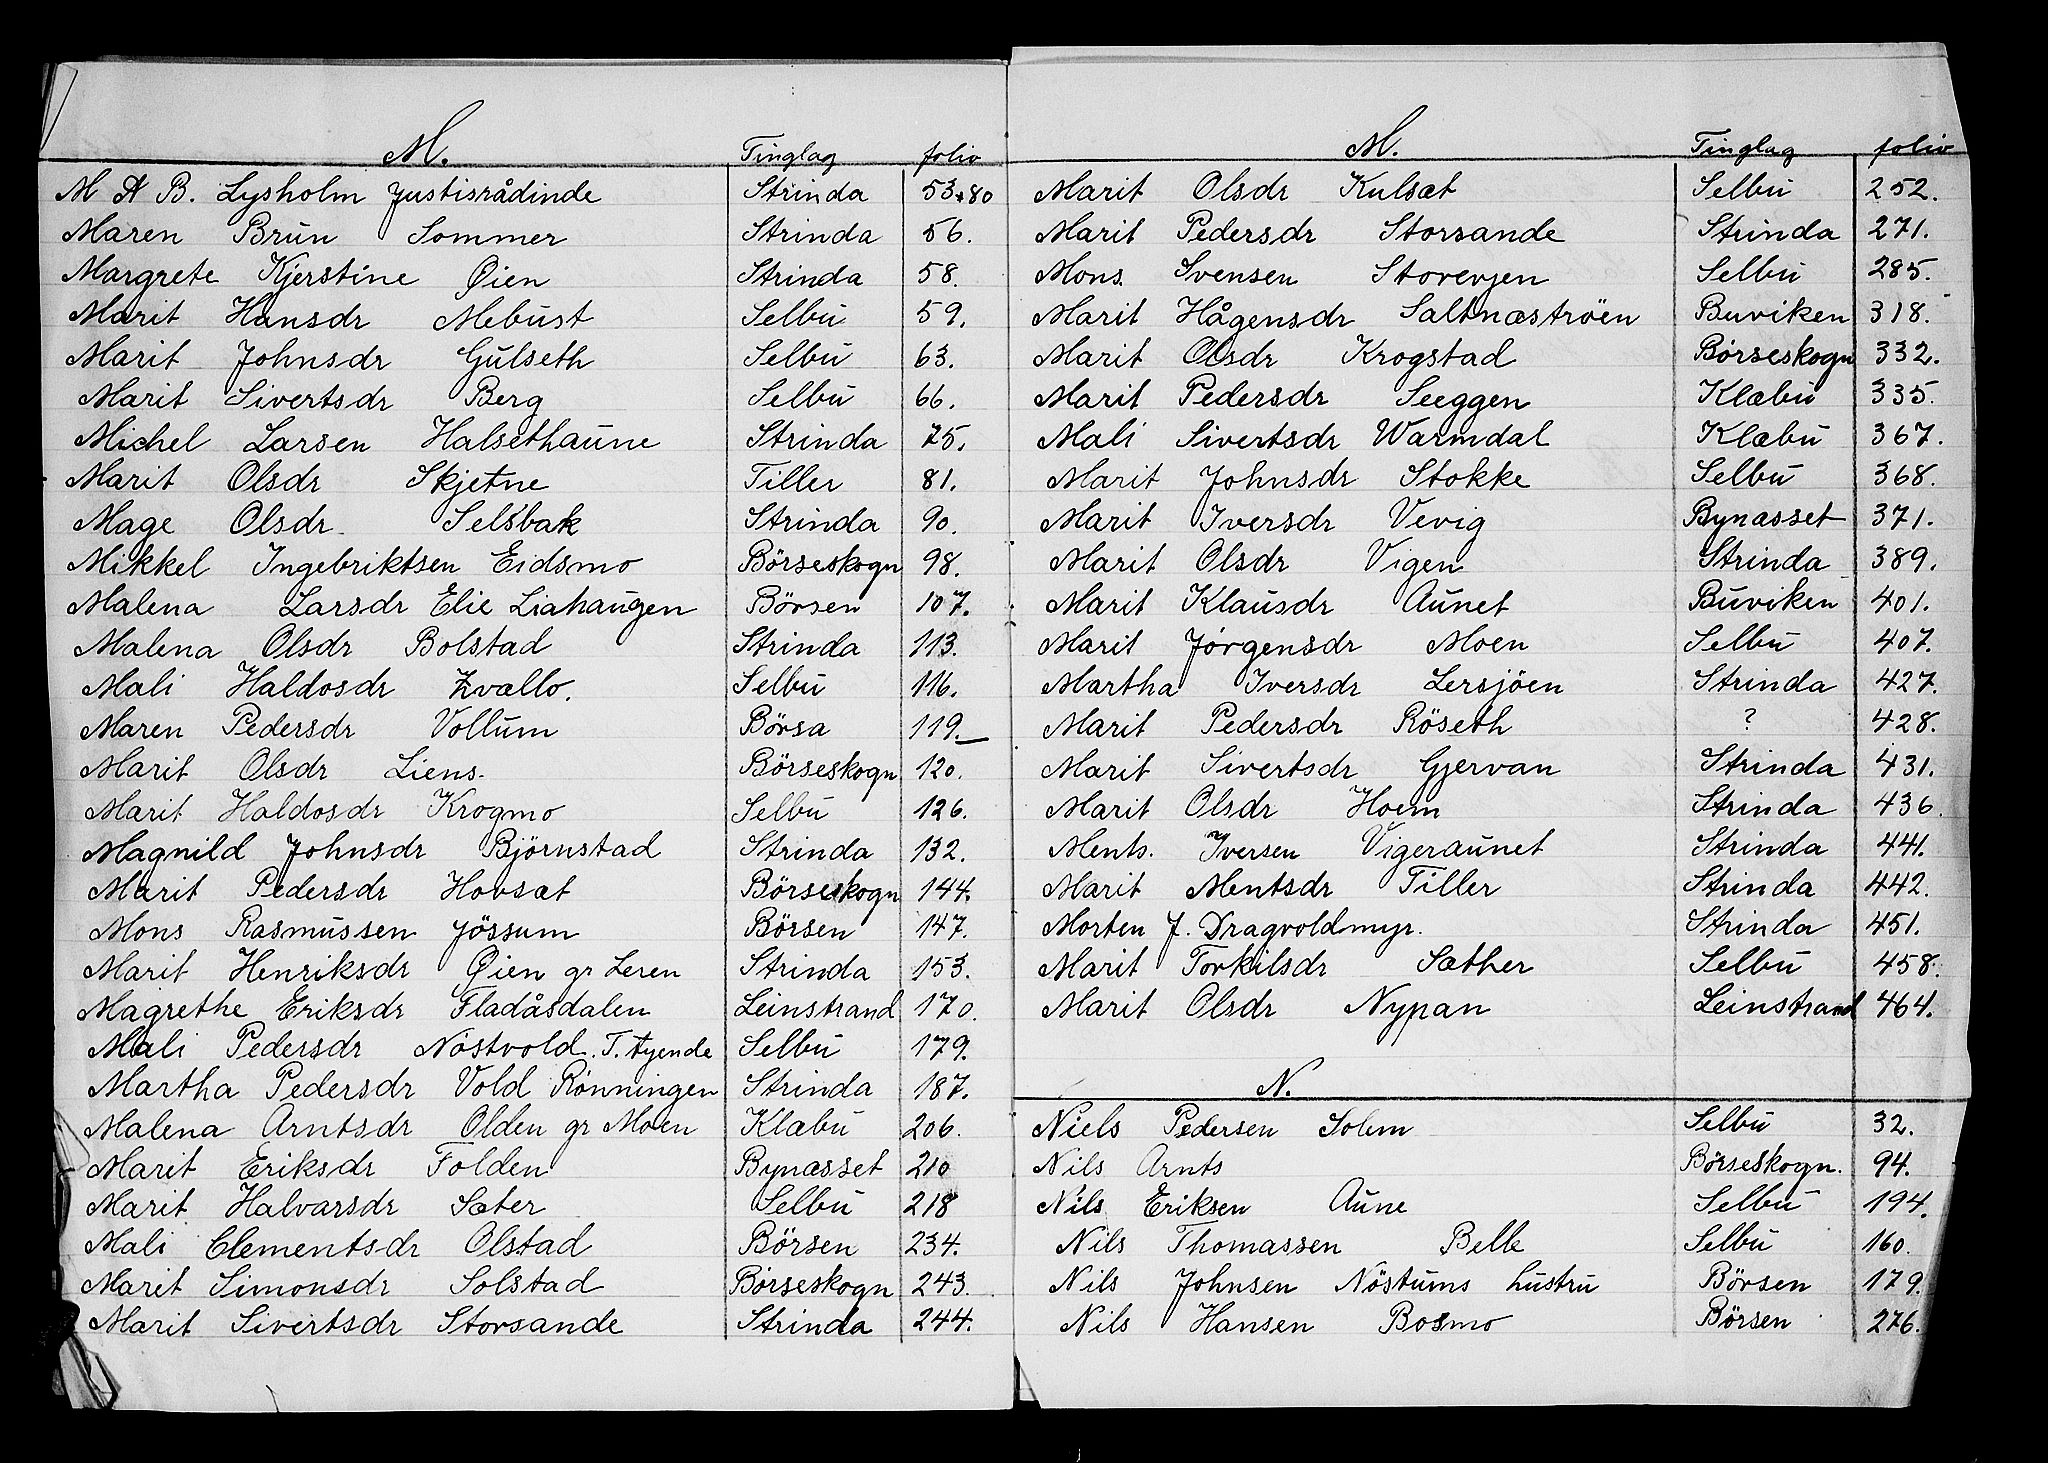 M. Tinglag folio
M A B. Lysholm Justisrådinde Strinda 53+80
Maren Brun Sommer Strinda 56.
Margrete Kjerstine Øien Strinda 58.
Marit Hansdr Mebust Selbu 59.
Marit Johnsdr Gulseth Selbu 63.
Marit Sivertsdr Berg Selbu 66.
Michel Larsen Halsethaune Strinda 75.
Marit Olsdr Skjetne Tiller 81.
Mage Olsdr Selsbak Strinda 90.
Mikkel Ingebriktsen Eidsmo Börseskogn 98.
Malena Larsdr Elie Liahaugen Börsen 107.
Malena Olsdr Bolstad Strinda 113.
Mali Haldosdr Kvello. Selbu 116.
Maren Pedersdr Vollum Börsa 119.
Marit Olsdr Liens. Börseskogn 120.
Marit Haldosdr Krogmo Selbu 126.
Magnild Johnsdr Björnstad Strinda 132.
Marit Pedersdr Hovsæt Börseskogn 144.
Mons Rasmussen Jössum Börsen 147.
Marit Henriksdr Øien gr Leren Strinda 153.
Magrethe Eriksdr Fladåsdalen Leinstrand 170.
Mali Pedersdr Nöstvold. T. tyende Selbu 179.
Martha Pedersdr Vold Rönningen Strinda 187.
Malena Arntsdr Olden gr Moen Klæbu 206.
Marit Eriksdr Folden Bynæsset 210
Marit Halvarsdr Sæter Selbu 218
Mali Clementsdr Olstad Börsen 234.
Marit Simonsdr Solstad Börseskogn 243.
Marit Sivertsdr Storsande Strinda 244.
M. Tinglag folio
Marit Olsdr Kulsæt Selbu 252.
Marit Pedersdr Storsande Strinda 271.
Mons. Svensen Storevjen Selbu 285.
Marit Hågensdr Saltnæströen Buviken 318.
Marit Olsdr Krogstad Börseskogn 332.
Marit Pedersdr Seeggen Klæbu 335.
Mali Sivertsdr Warmdal Klæbu 367.
Marit Johnsdr Stokke Selbu 368.
Marit Iversdr Vevig Bynæsset 371.
Marit Olsdr Vigen Strinda 389.
Marit Klausdr Aunet Buviken 401.
Marit Jörgensdr Moen Selbu 407.
Martha Iversdr Lersjöen Strinda 427.
Marit Pedersdr Röseth ? 428.
Marit Sivertsdr Gjervan Strinda 431.
Marit Olsdr Hoem Strinda 436.
Ments. Iversen Vigeraunet Strinda 441.
Marit Mentsdr Tiller Strinda 442.
Morten J. Dragvoldmyr. Strinda 451.
Marit Torkilsdr Sæther Selbu 458.
Marit Olsdr Nypan Leinstrand 464.
N.
Niels Pedersen Solem Selbu 32.
Nils Arnts Börseskogn. 94.
Nils Eriksen Aune Selbu 194.
Nils Thomassen Belle Selbu 160.
Nils Johnsen Nöstums hustru Börsen 179.
Nils Hansen Bosmo Börsen 276.